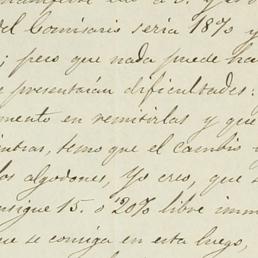 del Comisario seria 18% y
; pero que nada puede ha
presentarian dificultades:
mento en remitirlas y que
intras, temo que el cambio
los algodones, Yo creo, que
nsigue 15. o 20% libre imm
que se consiga en esta luego,